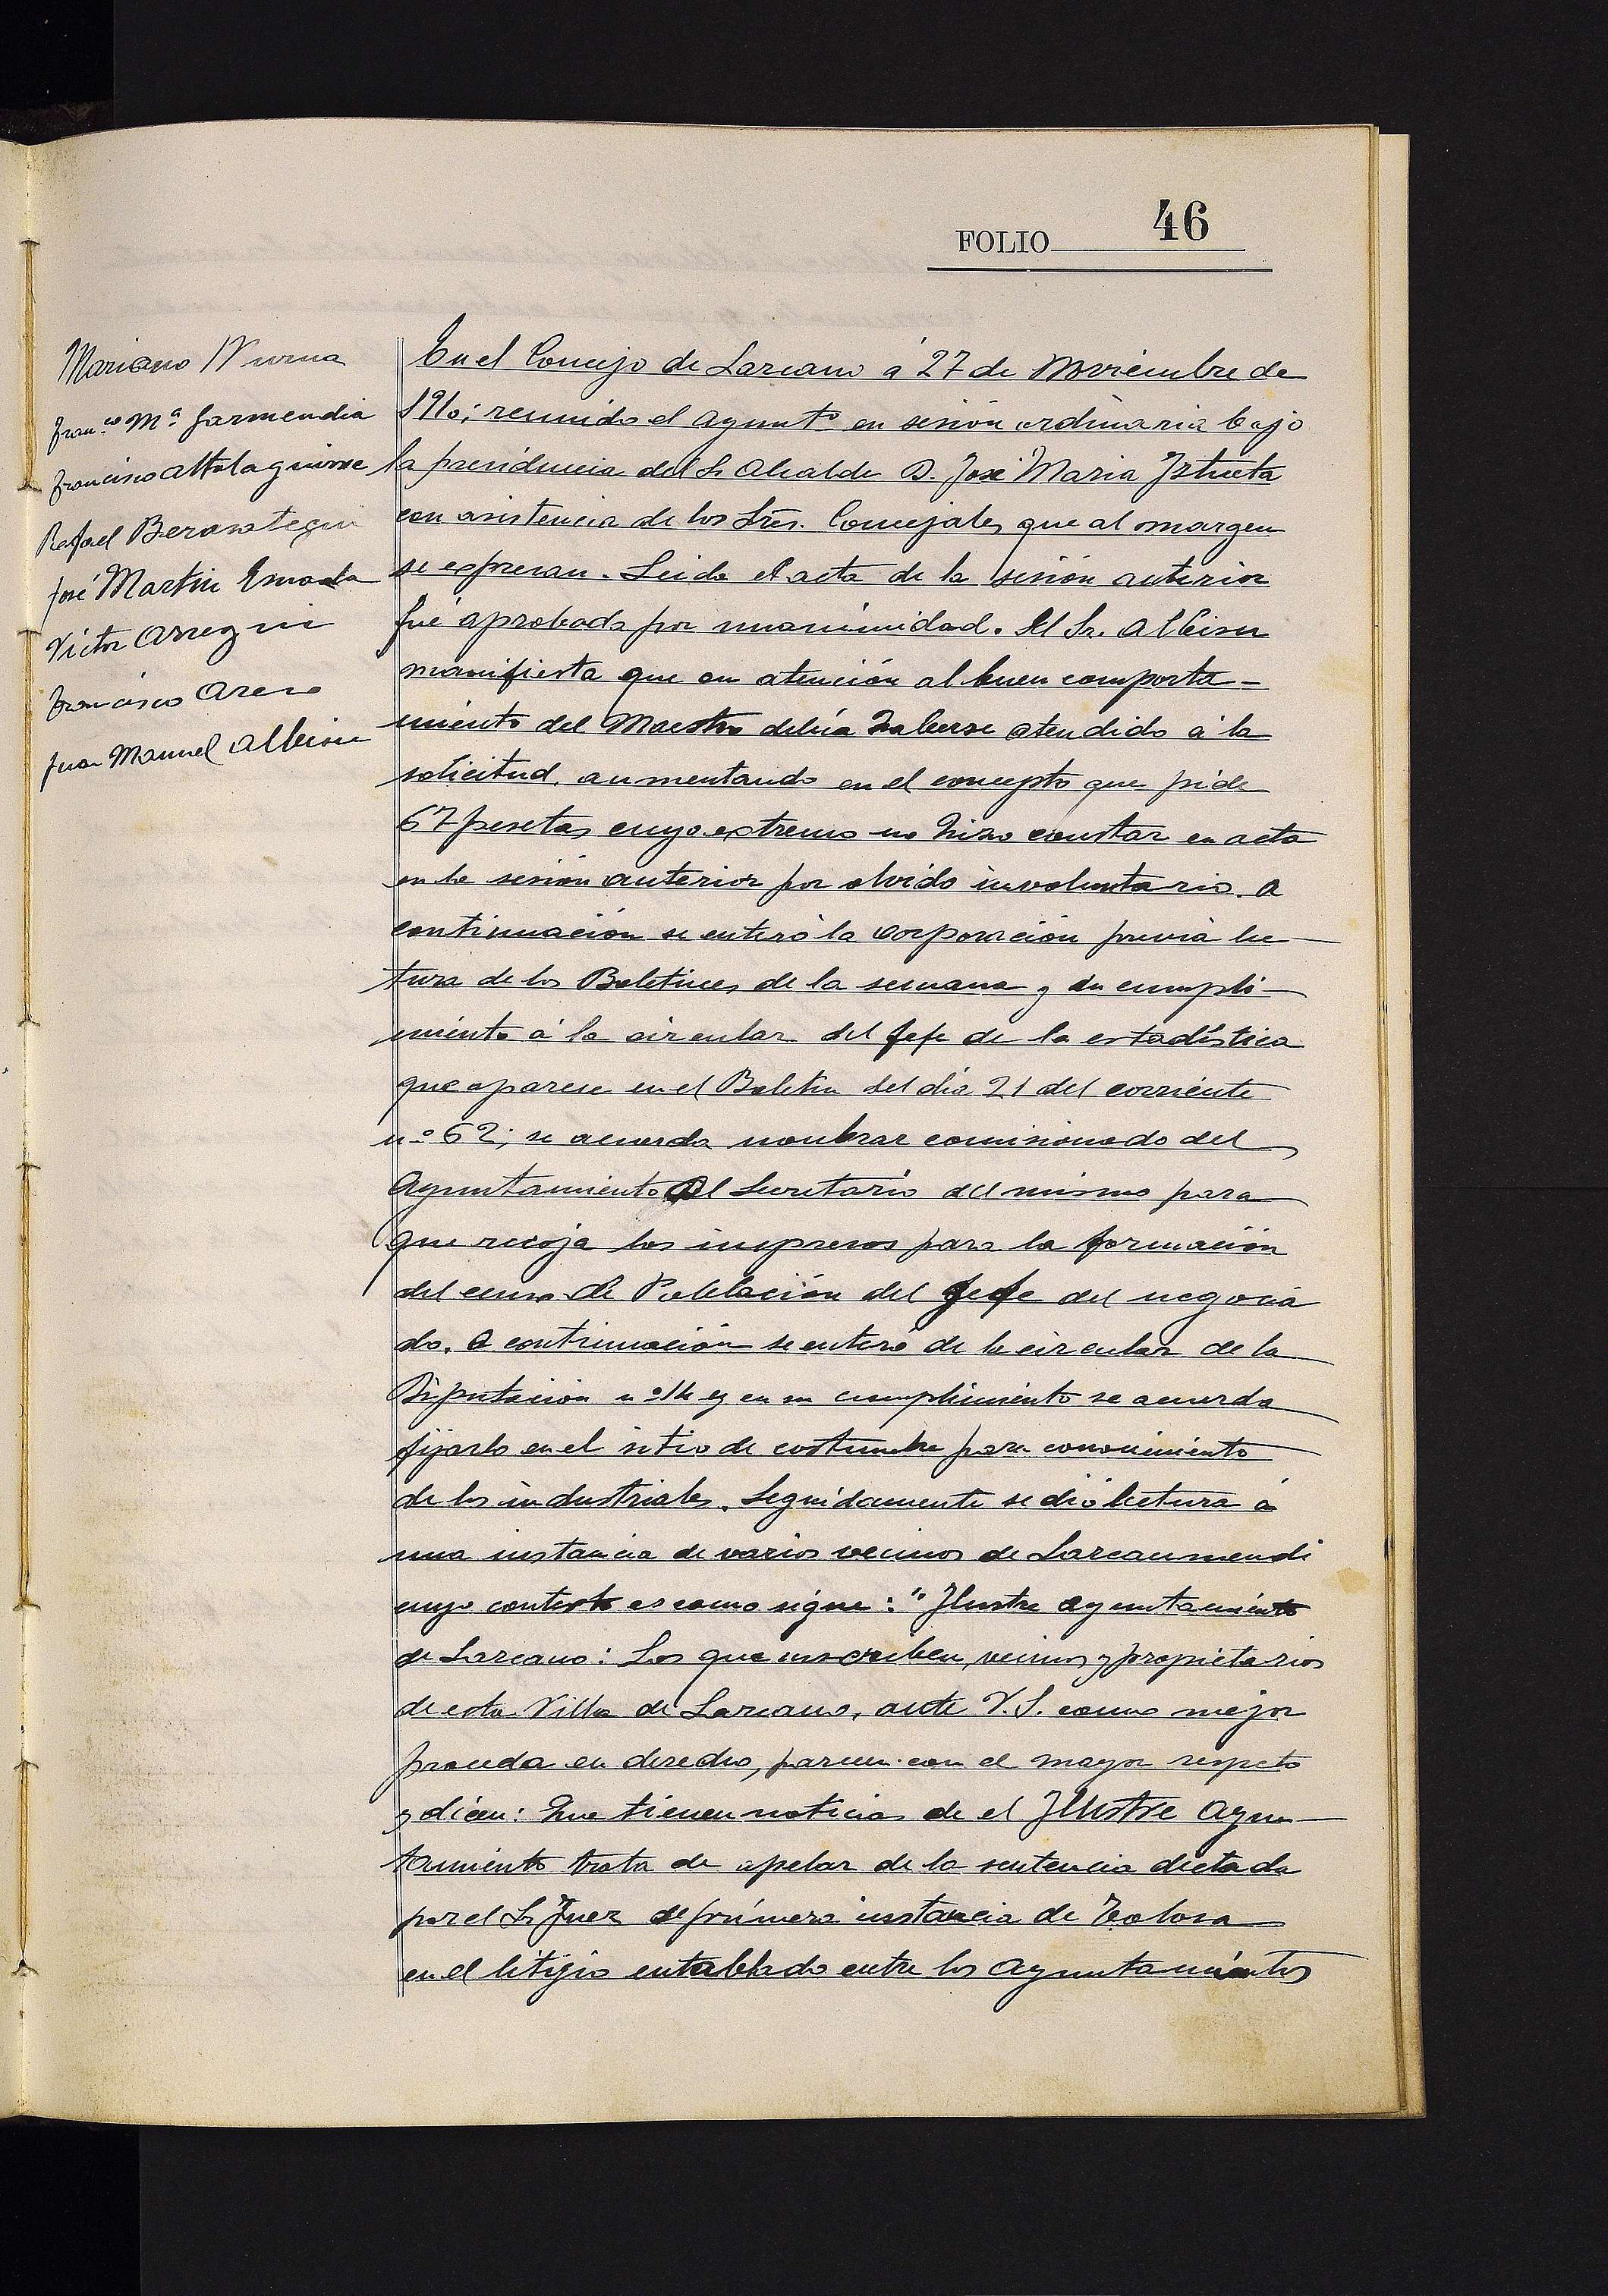 FOLIO 46
Mariano
Fran.co M.a Garmendia
Francisco Altolaguirre
Rafael Berasategui
José Martin
Victor Arregui
Francisco
Juan Manuel Albisu
En el Concejo de Lazcano á 27 de Noviembre de
1910; reunido el Ayunto en sesión ordinaria bajo
la presidencia del Sr Alcalde D. José Maria Iztueta
con asistencia de los Sres. Concejales que al margen
se expresan. Leida el acta de la sesión anterior
fué aprobada por unanimidad. El Sr. Albisu
manifiesta que en atención al buen comporta-
miento del Maestro debía haberse atendido á la
solicitud, aumentando en el concepto que pide
67 pesetas cuyo extremo no hizo constar en acta
en la sesión anterior por olvido involuntario. A
continuación se enteró la corporación previa lec
tura de los Boletines de la semana y en cumpli-
miento á la circular del Jefe de la estadística
que aparese en el Boletin del dia 21 del corriente
n.o 62; se acuerda nombrar comisionado del
Ayuntamiento al Secretario del mismo para
que recoja los impresos para la formación
del censo de Población del Jefe del negocia
do. A continuación se enteró de la circular de la
Diputación n.o 14 y en su cumplimiento se acuerda
fijarlo en el sitio de costumbre para conocimiento
de los industriales. Seguidamente se dió lectura á
una instancia de varios vecinos de Lazcaumendi
cuyo contexto es como sigue: "Ilustre ayuntamiento
de Lazcano: Los que suscriben, vecinos y propietarios
de esta Villa de Lazcano, ante V.S. como mejor
proceda en derecho, parecen con el mayor respeto
y dicen: Que tienen noticias de el Ilustre Ayun-
tamiento trata de apelar de la sentencia dictada
por el Sr Juez de primera instancia de Tolosa
en el litigio entablado entre los Ayuntamientos